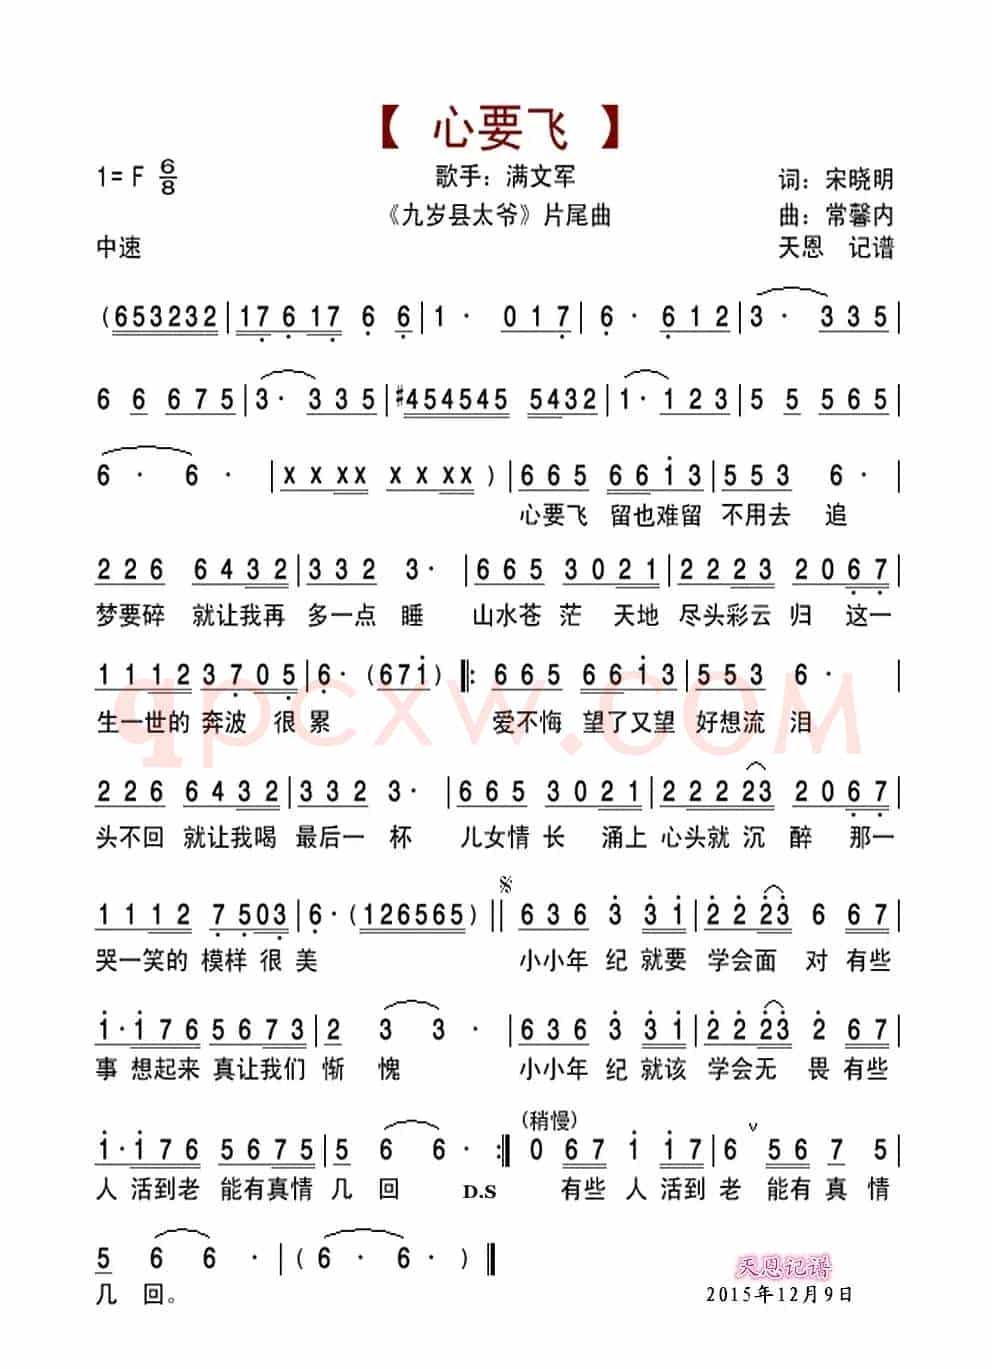 【 心要飞 】
1= F 6/8
歌手：满文军
词：宋晓明
《九岁县太爷》片尾曲
曲：常馨内
中速
天恩 记谱
(653232|176 17 6 6|1· 017|6· 612|3· 335|
6 6 675|3· 335|#454545 5432|1· 123|5 5 565|
6· 6· |x x xx x x xx )|665 6613|553 6· |
心要飞 留也难留 不用去 追
226 6432|332 3· |665 3021|2223 2067|
梦要碎 就让我再 多一点 睡 山水苍 茫 天地 尽头彩云 归 这一
1112 3705|6· (671)‖:665 6613|553 6· |
生一世的 奔波 很 累 爱不悔 望了又望 好想流 泪
qpcxw.COM
226 6432|332 3· |665 3021|2223 2067|
头不回 就让我喝 最后一 杯 儿女情 长 涌上 心头就 沉 醉 那一
1112 7503|6· (126565)‖636 3 31|2223 6 67|
哭一笑的 模样 很 美 小小年 纪 就要 学会面 对 有些
1·176 5673|2 3 3· |636 3 31|2223 2 67|
事 想起来 真让我们 惭 愧 小小年 纪 就该 学会无 畏 有些
(稍慢)
1·176 5675|5 6 6· :‖0 67 1 17|6 ∨ 56 7 5|
人 活到老 能有真情 几 回 D.S 有些 人 活到 老 能有 真 情
5 6 6· |( 6· 6· )‖
几 回。
天恩记谱
2015年12月9日